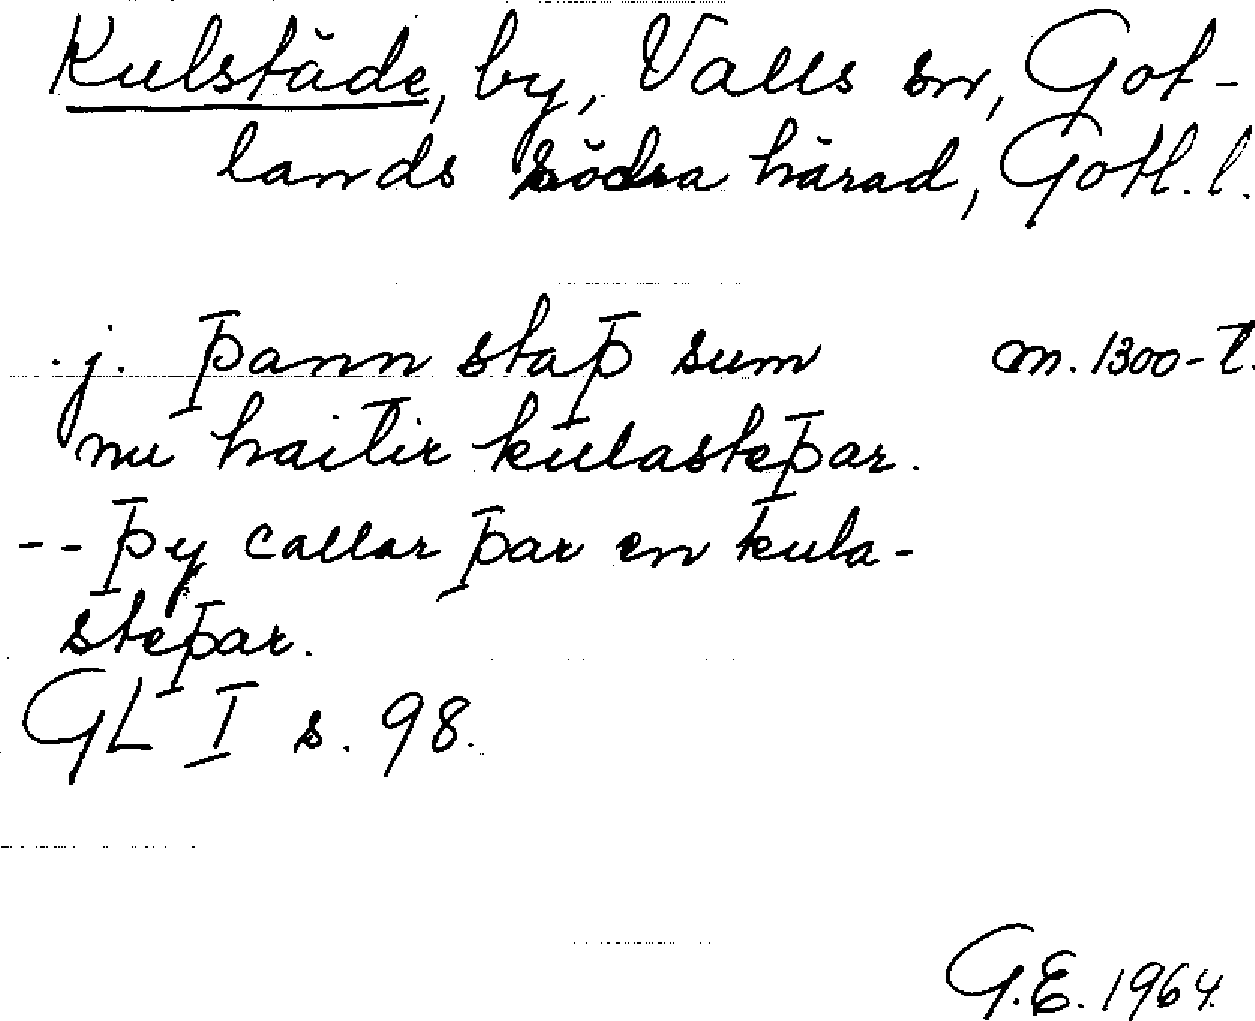 Kulstäde, by, Valls sn, Got-
lands södra härad, Gotl. l.
.j. þann staþ sum m. 1300-t.
nu haitir kulasteþar.
-- þy callar þar en kula-
steþar.
GL I s. 98.
G.E. 1964.